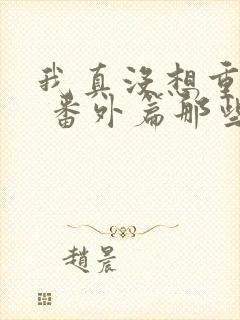 我真没想重
番外篇那些
趙晨